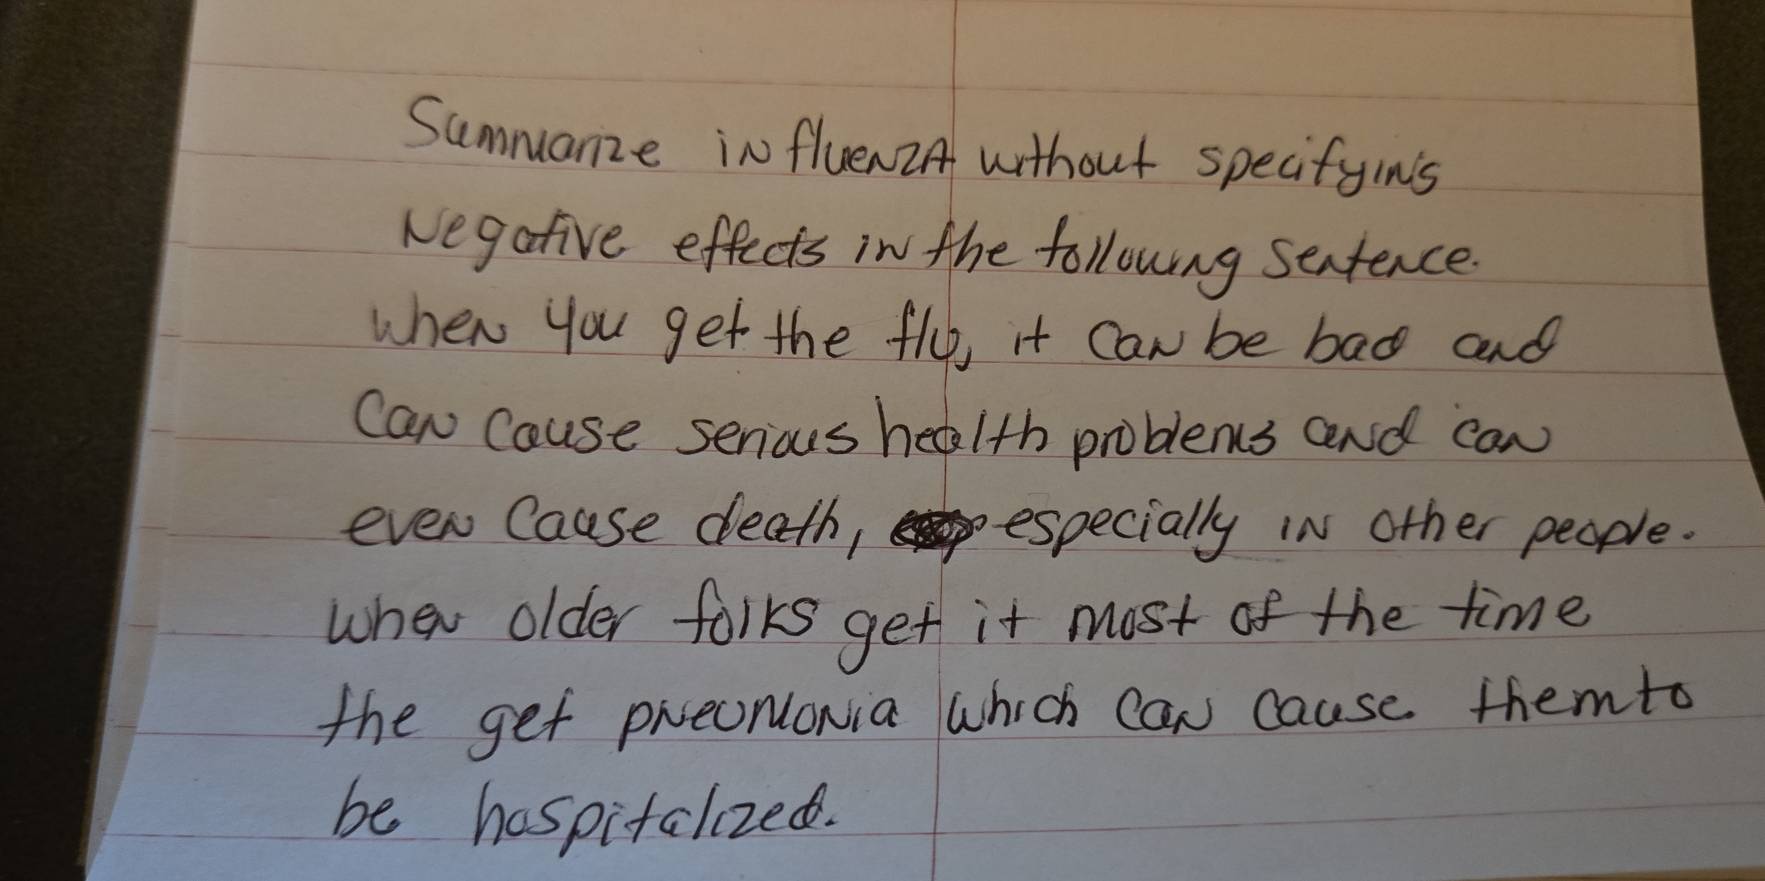 Summarize influenza without specifying
negative effects in the following sentence.
When you get the flu, it can be bad and
can cause serious health problems and can
even cause death, especially in other people.
When older folks get it most of the time
the get pneumonia which can cause them to
be hospitalized.